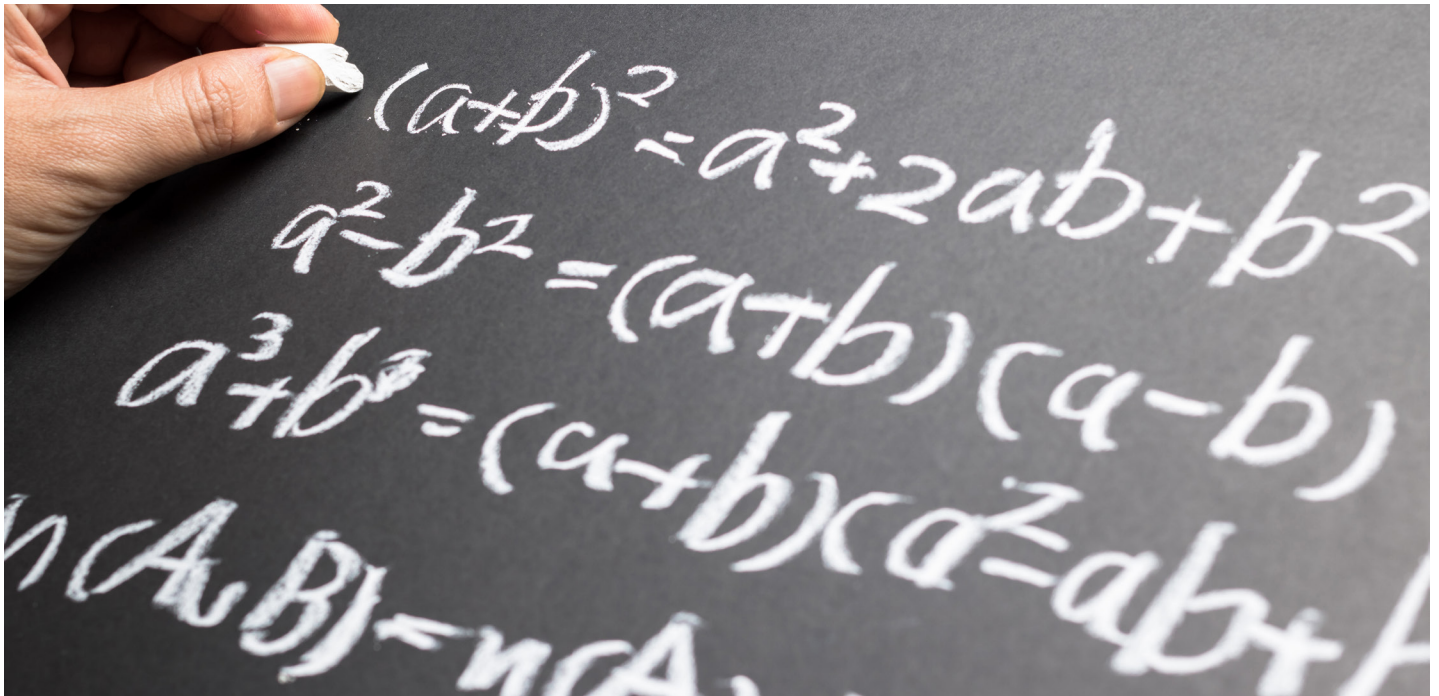 (a+b)² = a²+2ab+b²
a²-b² = (a+b)(a-b)
a³+b³ = (a+b)(a²-ab+
n(A∪B) = n(A